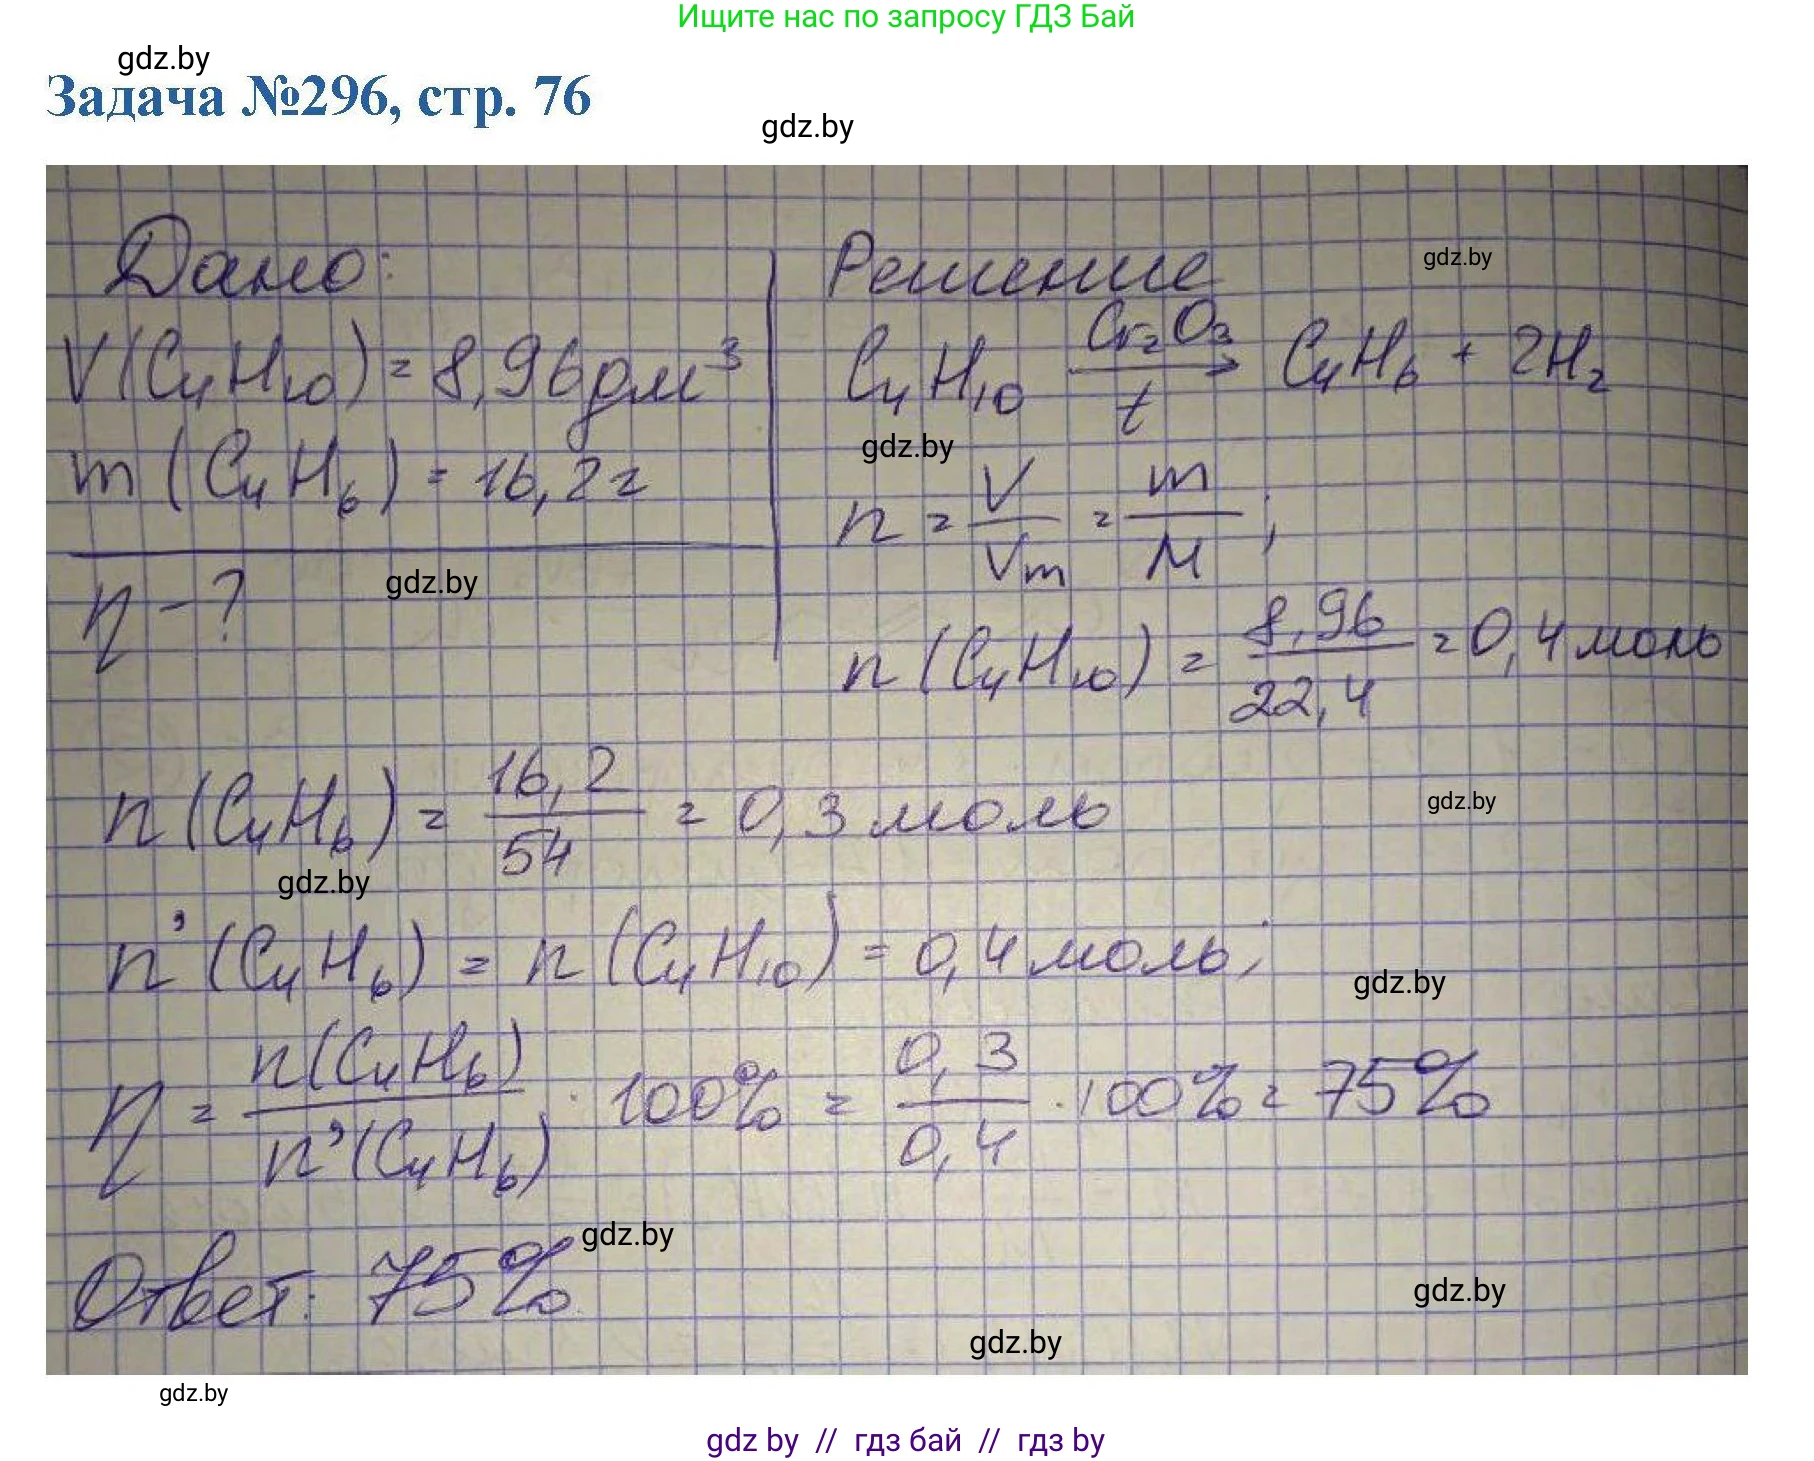 Ищите нас по запросу ГДЗ Бай
gdz.by
Задача №296, стр. 76
gdz.by
Дано:
V(C₄H₁₀) = 8,96 дм³
m (C₄H₆) = 16,2 г
η - ?
gdz.by
Решение
gdz.by
C₄H₁₀ →(Cr₂O₃, t) C₄H₆ + 2H₂
gdz.by
n = V/Vm = m/M;
n (C₄H₁₀) = 8,96/22,4 = 0,4 моль
n (C₄H₆) = 16,2/54 = 0,3 моль
gdz.by
gdz.by
n' (C₄H₆) = n (C₄H₁₀) = 0,4 моль;
gdz.by
η = n(C₄H₆)/n'(C₄H₆) · 100% = 0,3/0,4 · 100% = 75%
gdz.by
Ответ: 75%.
gdz.by
gdz.by
gdz.by
gdz by // гдз бай // гдз by